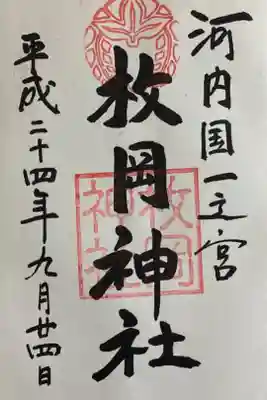 河内国一之宮
枚岡神社
平成二十四年九月廿四日
枚岡
神社